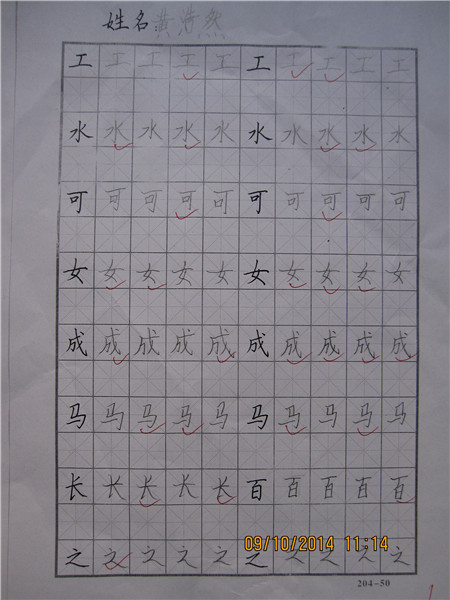 姓名:黄浩然
工工工工工工工工工工
水水水水水水水水水水
可可可可可可可可可可
女女女女女女女女女女
成成成成成成成成成成
马马马马马马马马马马
长长长长长百百百百百
之之之之之之之之之之
09/10/2014 11:14
204-50